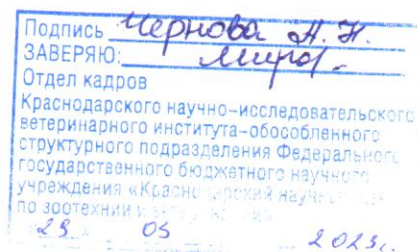 Подпись Чернова А. Н.
ЗАВЕРЯЮ:
Отдел кадров
Краснодарского научно-исследовательского
ветеринарного института-обособленного
структурного подразделения Федерального
государственного бюджетного научного
учреждения «Краснодарский
по зоотехнии и
29 05 2023г.